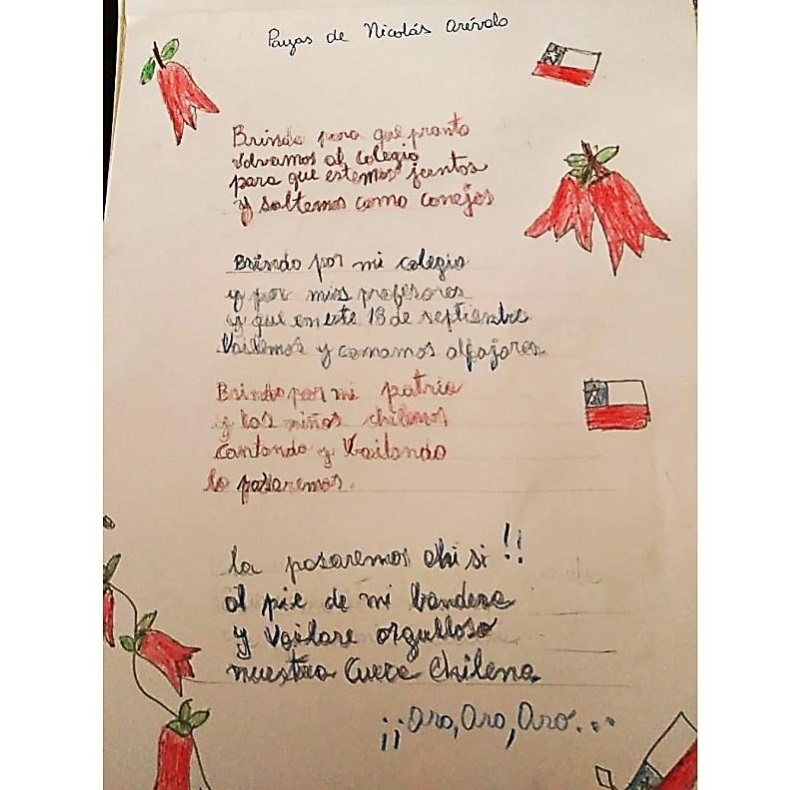 Payas de Nicolás Arévalo
Brindo para que pronto
volvamos al colegio
para que estemos juntos
y saltemos como conejos
Brindo por mi colegio
y por mis profesores
y que en este 18 de septiembre
Vailemos y comamos alfajores
Brindo por mi patria
y los niños chilenos
cantando y Vailando
lo pasaremos.
la pasaremos ahi si !!
al pie de mi bandera
y Vailare orgulloso
nuestra Cueca Chilena
¡¡Aro, Aro, Aro...